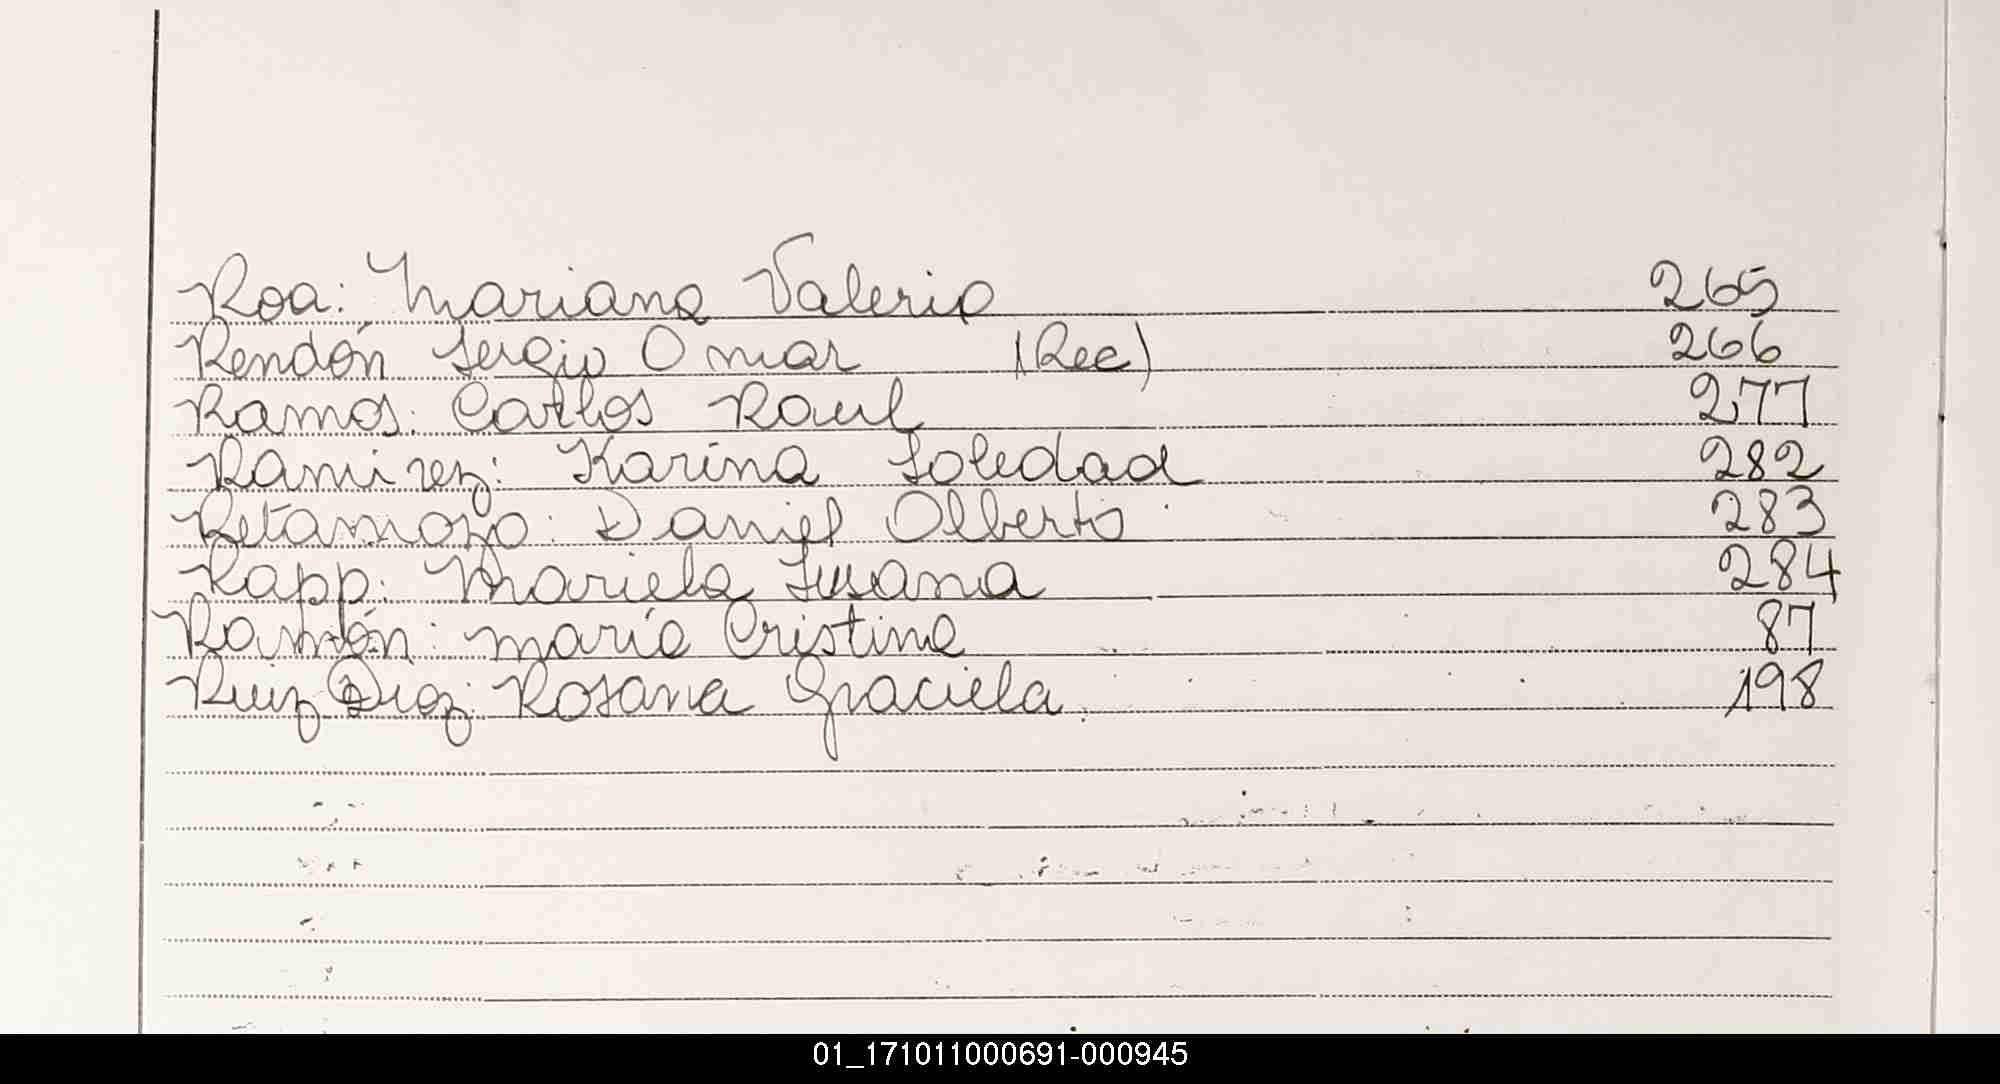 Roa: Mariana Valeria 265
Rendón Sergio Omar (Rec) 266
Ramos: Carlos Raul 277
Ramirez: Karina Soledad 282
Retamozo: Daniel Alberto 283
Rapp: Mariela Susana 284
Ramón: maría Cristina 87
Ruiz Diaz: Rosana Graciela. 198
01_171011000691-000945